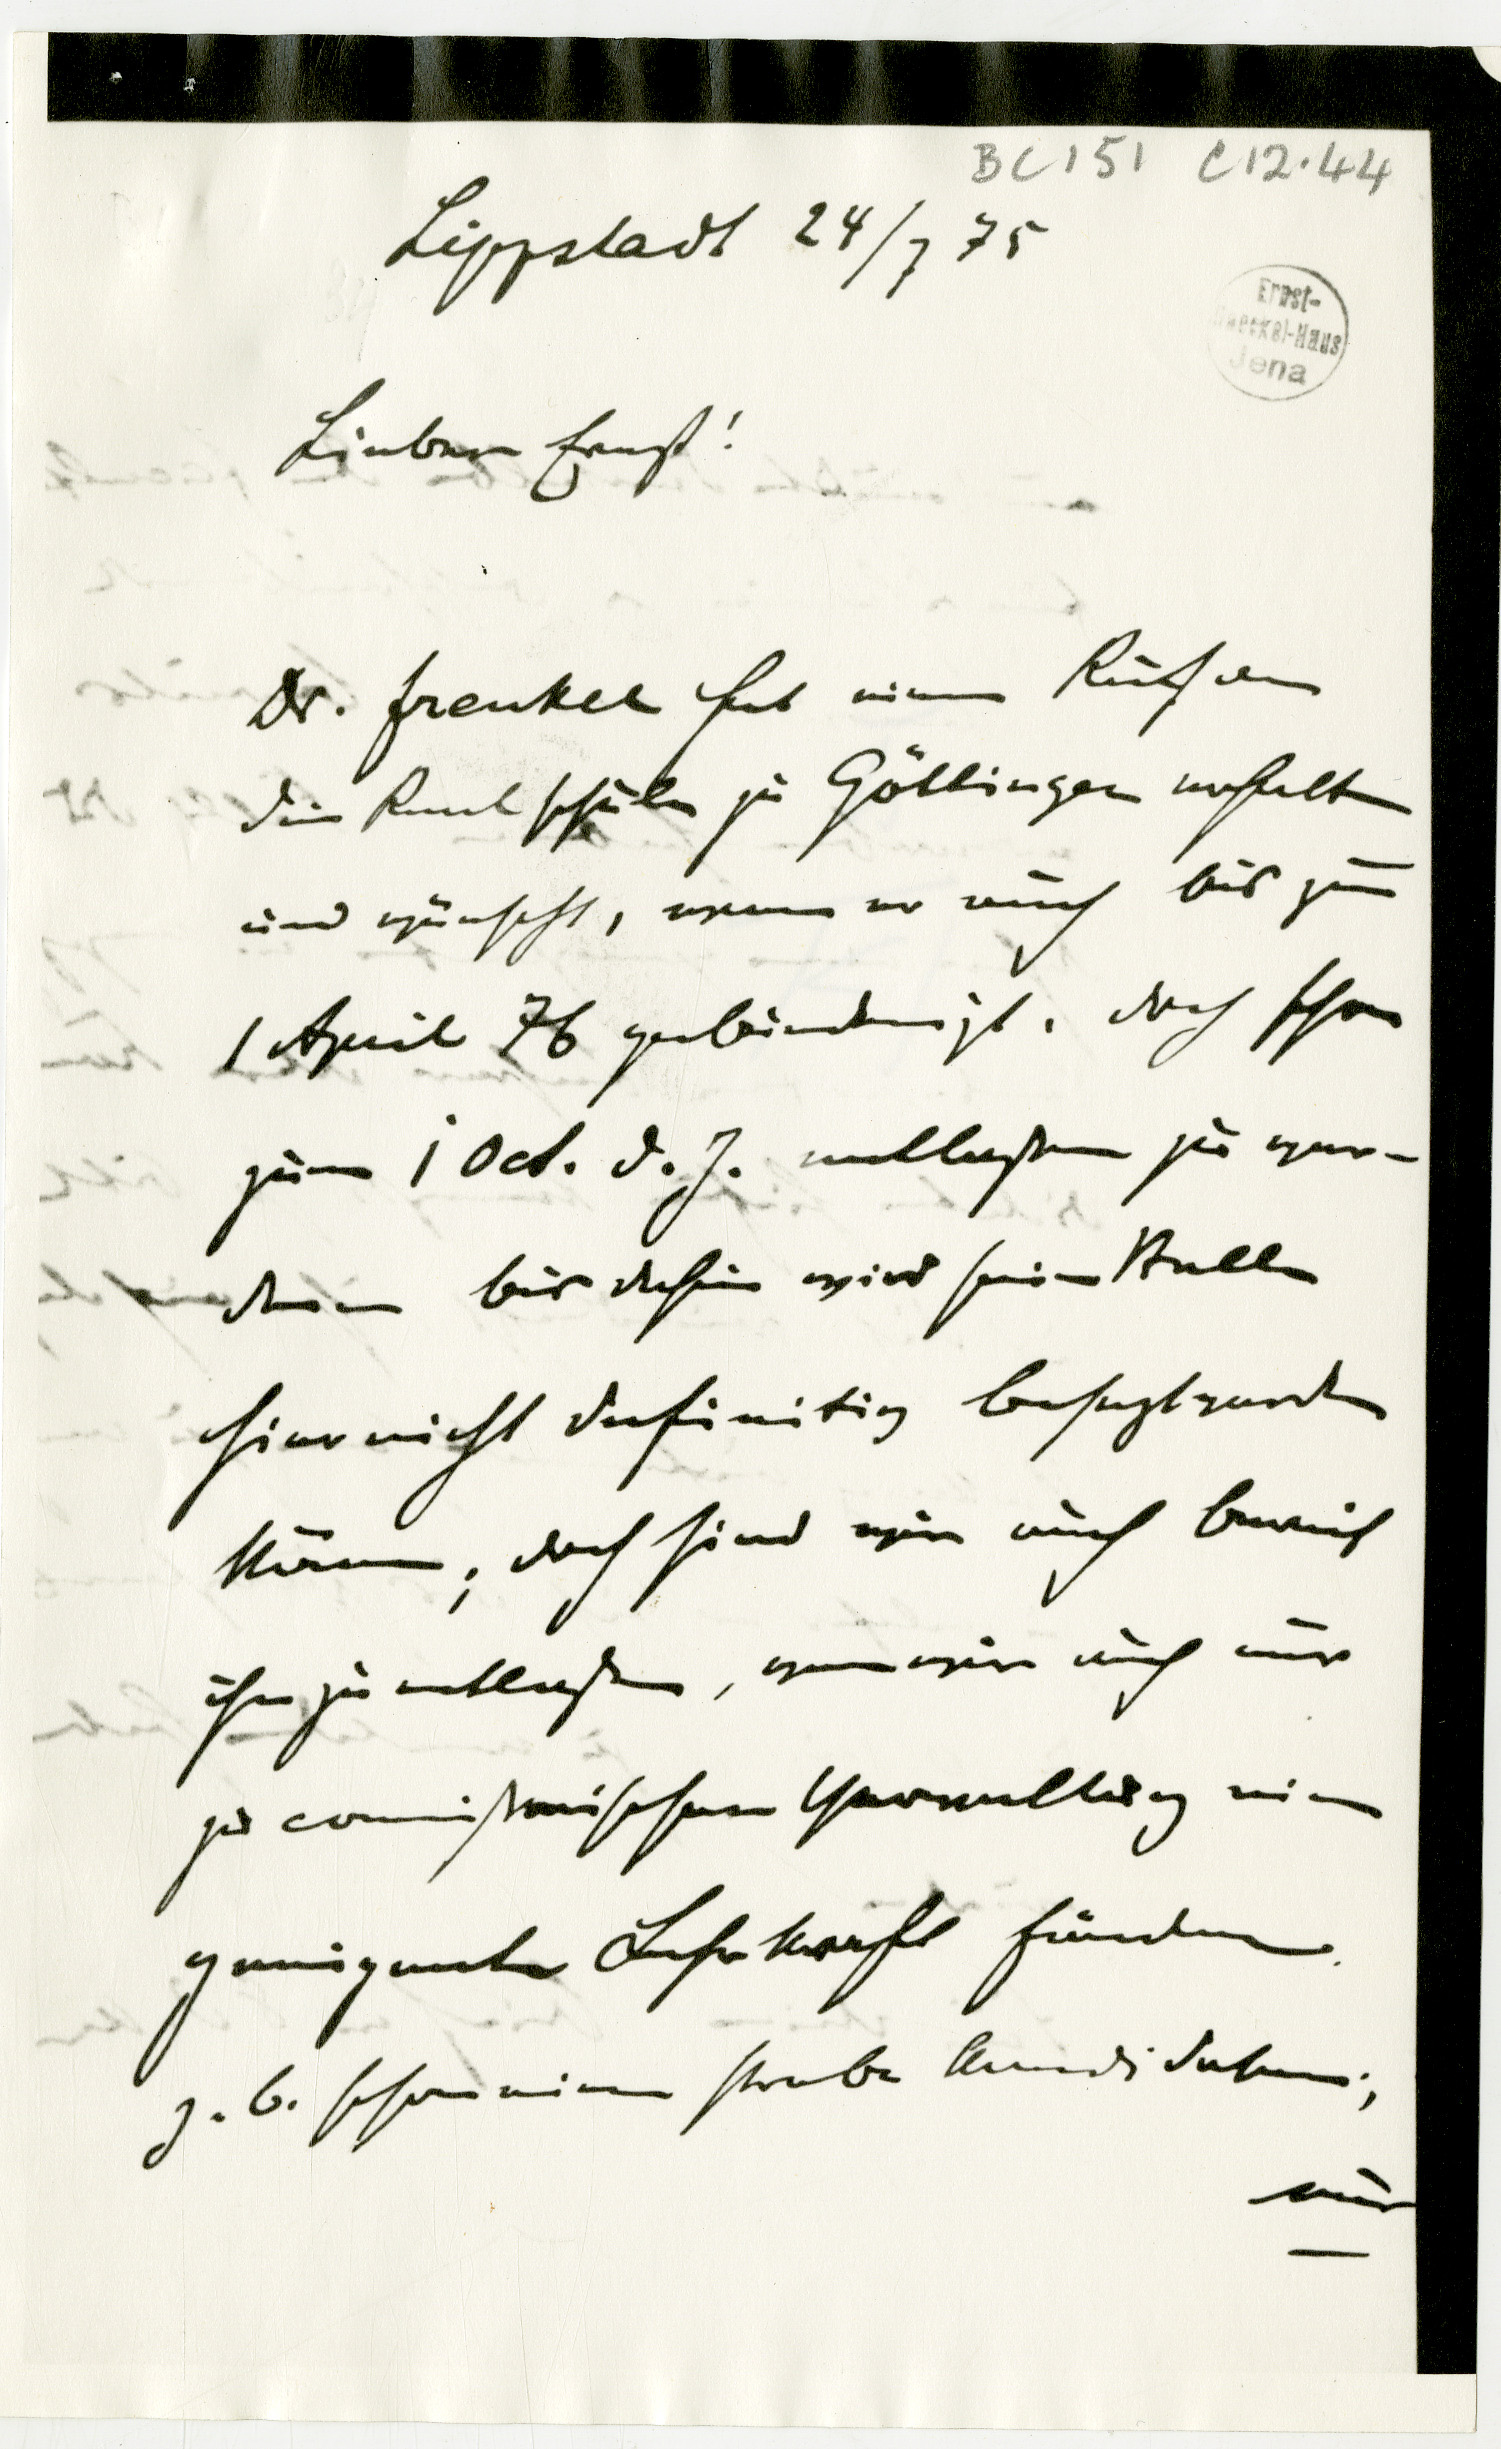 BC151 C12.44
Lippstadt 24/7 75
Ernst-
Haeckel-Haus
Jena
Lieber Ernst!
Dr. Frenkel hat einen Ruf an
die Realschule zu Göttingen erhalten
und wünscht, wenn er auch bis zum
1 April 76 gebunden ist, doch schon
zum 1 Oct. d. J. entlassen zu wer-
den bis dahin wird seine Stelle
hier nicht definitiv besetzt werden
können, doch sind wir auch bereit
ihn zu entlassen, wenn wir auch nur
zu commissarischen Verwaltung eine
geeignete Lehrkraft finden.
z. B. schon einen Probe Candidaten;
nur